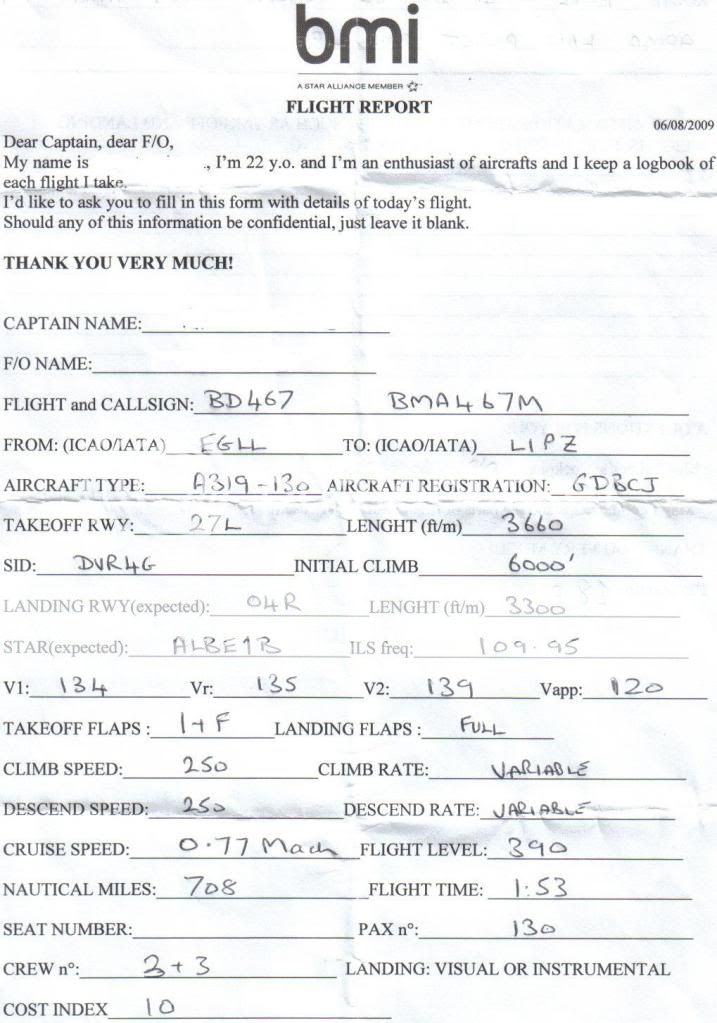 bmi
A STAR ALLIANCE MEMBER
FLIGHT REPORT
06/08/2009
Dear Captain, dear F/O,
My name is ., I'm 22 y.o. and I'm an enthusiast of aircrafts and I keep a logbook of
each flight I take.
I'd like to ask you to fill in this form with details of today's flight.
Should any of this information be confidential, just leave it blank.
THANK YOU VERY MUCH!
CAPTAIN NAME:
F/O NAME:
FLIGHT and CALLSIGN: BD467 BMA467M
FROM: (ICAO/IATA) EGLL TO: (ICAO/IATA) LIPZ
AIRCRAFT TYPE: A319-130 AIRCRAFT REGISTRATION: GDBCJ
TAKEOFF RWY: 27L LENGHT (ft/m) 3660
SID: DVR4G INITIAL CLIMB 6000'
LANDING RWY(expected): 04R LENGHT (ft/m) 3300
STAR(expected): ALBE1B ILS freq: 109.95
V1: 134 Vr: 135 V2: 139 Vapp: 120
TAKEOFF FLAPS : 1+F LANDING FLAPS : FULL
CLIMB SPEED: 250 CLIMB RATE: VARIABLE
DESCEND SPEED: 250 DESCEND RATE: VARIABLE
CRUISE SPEED: 0.77 Mach FLIGHT LEVEL: 390
NAUTICAL MILES: 708 FLIGHT TIME: 1:53
SEAT NUMBER: PAX n°: 130
CREW n°: + 3 LANDING: VISUAL OR INSTRUMENTAL
COST INDEX 10